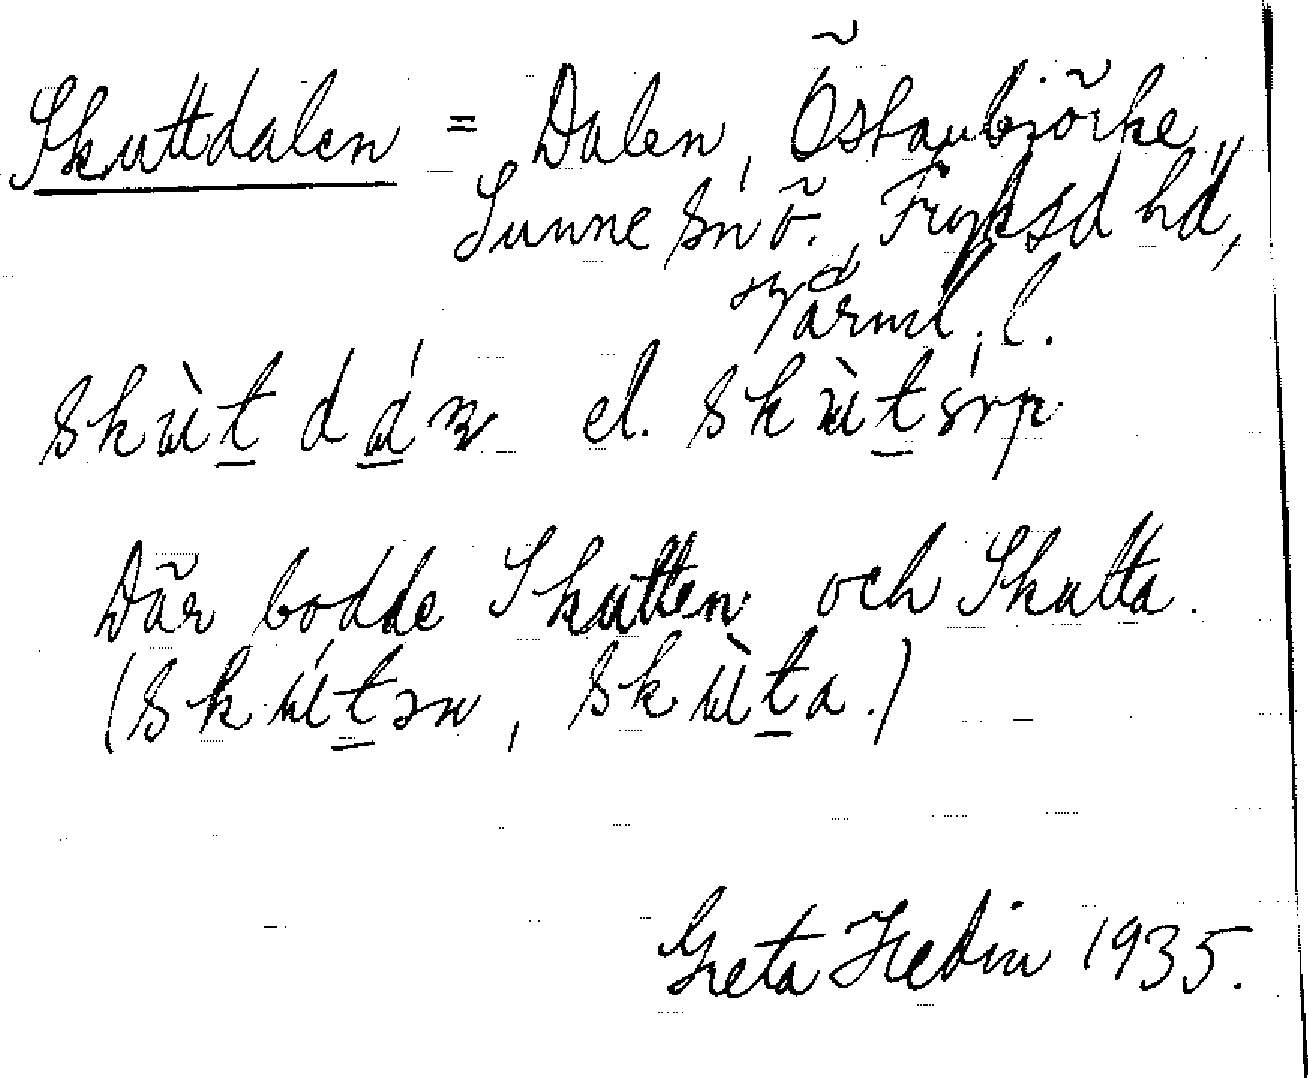 Skuttdalen = Dalen, Östanbjörke,
Sunne sn ö. Fryksd hd,
Värml. l.
skùt dáɳ el. skùtsŕp
Där bodde Skutten och Skutta.
(skútən, skùta.)
Greta Hedin 1935.